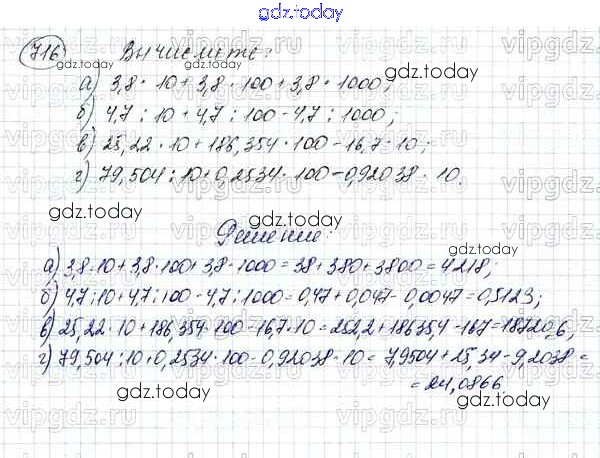 gdz.today
716 Вычислите:
gdz.today gdz.today
а) 3,8 · 10 + 3,8 · 100 + 3,8 · 1000;
б) 4,7 : 10 + 4,7 : 100 - 4,7 : 1000;
gdz.today gdz.today
в) 25,22 · 10 + 186,354 · 100 - 16,7 · 10;
г) 79,504 : 10 + 0,2534 · 100 - 0,92038 · 10.
gdz.today
Решение:
gdz.today gdz.today
а) 3,8 · 10 + 3,8 · 100 + 3,8 · 1000 = 38 + 380 + 3800 = 4218;
б) 4,7 : 10 + 4,7 : 100 - 4,7 : 1000 = 0,47 + 0,047 - 0,0047 = 0,5123;
в) 25,22 · 10 + 186,354 · 100 - 16,7 · 10 = 252,2 + 18635,4 - 167 = 18720,6;
г) 79,504 : 10 + 0,2534 · 100 - 0,92038 · 10 = 7,9504 + 25,34 - 9,2038 =
= 24,0866
gdz.today gdz.today
vipgdz.ru